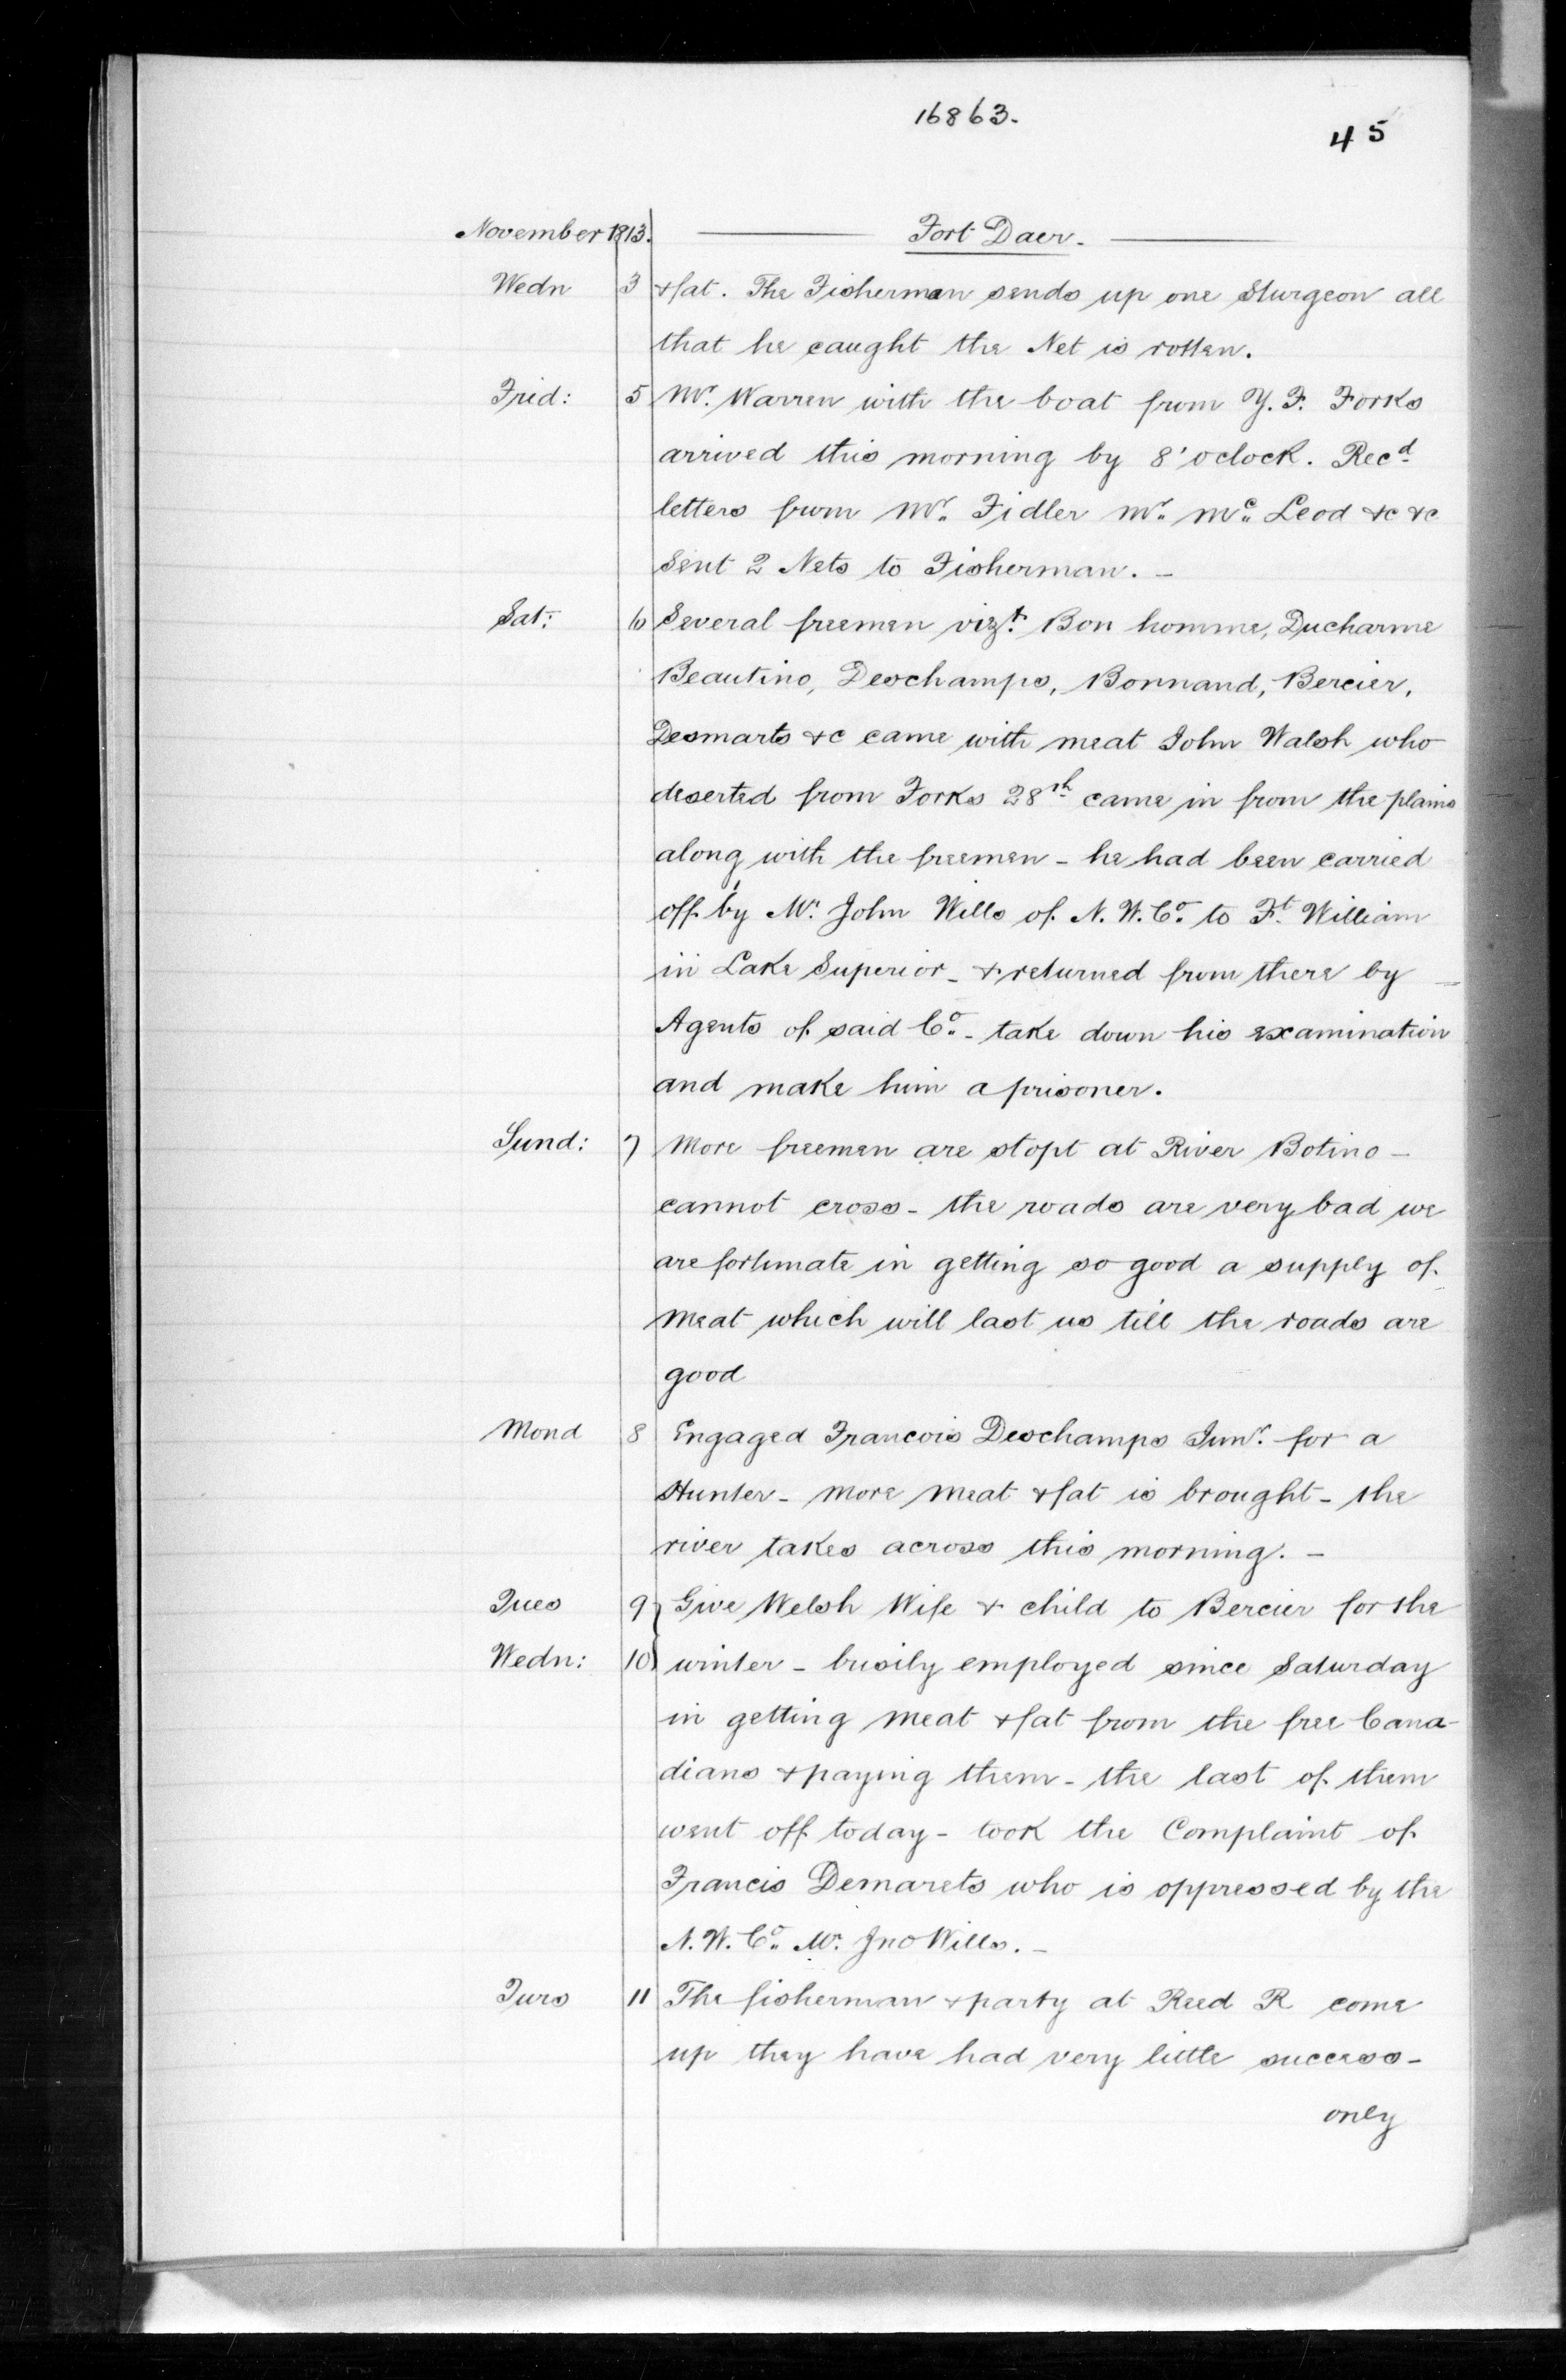 16863.
45
November 1813. Fort Daer.
Wedn 3 & fat. The Fisherman sends up one Sturgeon all
that he caught the Net is rotten.
Frid: 5 Mr. Warren with the boat from Y. F. Forks
arrived this morning by 8'oclock. Recd
letters from Mr. Fidler Mr. Mc. Leod &c &c
Sent 2 Nets to Fisherman. -
Sat: 6 Several freemen vizt. Bon homme, Ducharme
Beautino, Deschamps, Bonnand, Bercier,
Desmarts &c came with meat John Walsh who
deserted from Forks 28th came in from the plains
along with the freemen - he had been carried
off by Mr. John Wills of N. W. Co. to Ft. William
in Lake Superior - & returned from there by
Agents of said Co. - take down his examination
and make him a prisoner.
Sund: 7 More freemen are stopt at River Botino -
cannot cross - the roads are very bad we
are fortunate in getting so good a supply of
meat which will last us till the roads are
good
Mond 8 Engaged Francois Deschamps Junr. for a
Hunter - more meat & fat is brought - the
river takes across this morning. -
Tues 9 Give Welsh Wife & child to Bercier for the
Wedn: 10 winter - busily employed since Saturday
in getting meat & fat from the free Cana-
dians & paying them - the last of them
went off today - took the Complaint of
Francis Demarets who is oppressed by the
N. W. Co. Mr. Jno Wills. -
Turs 11 The fisherman & party at Reed R come
up they have had very little success -
only